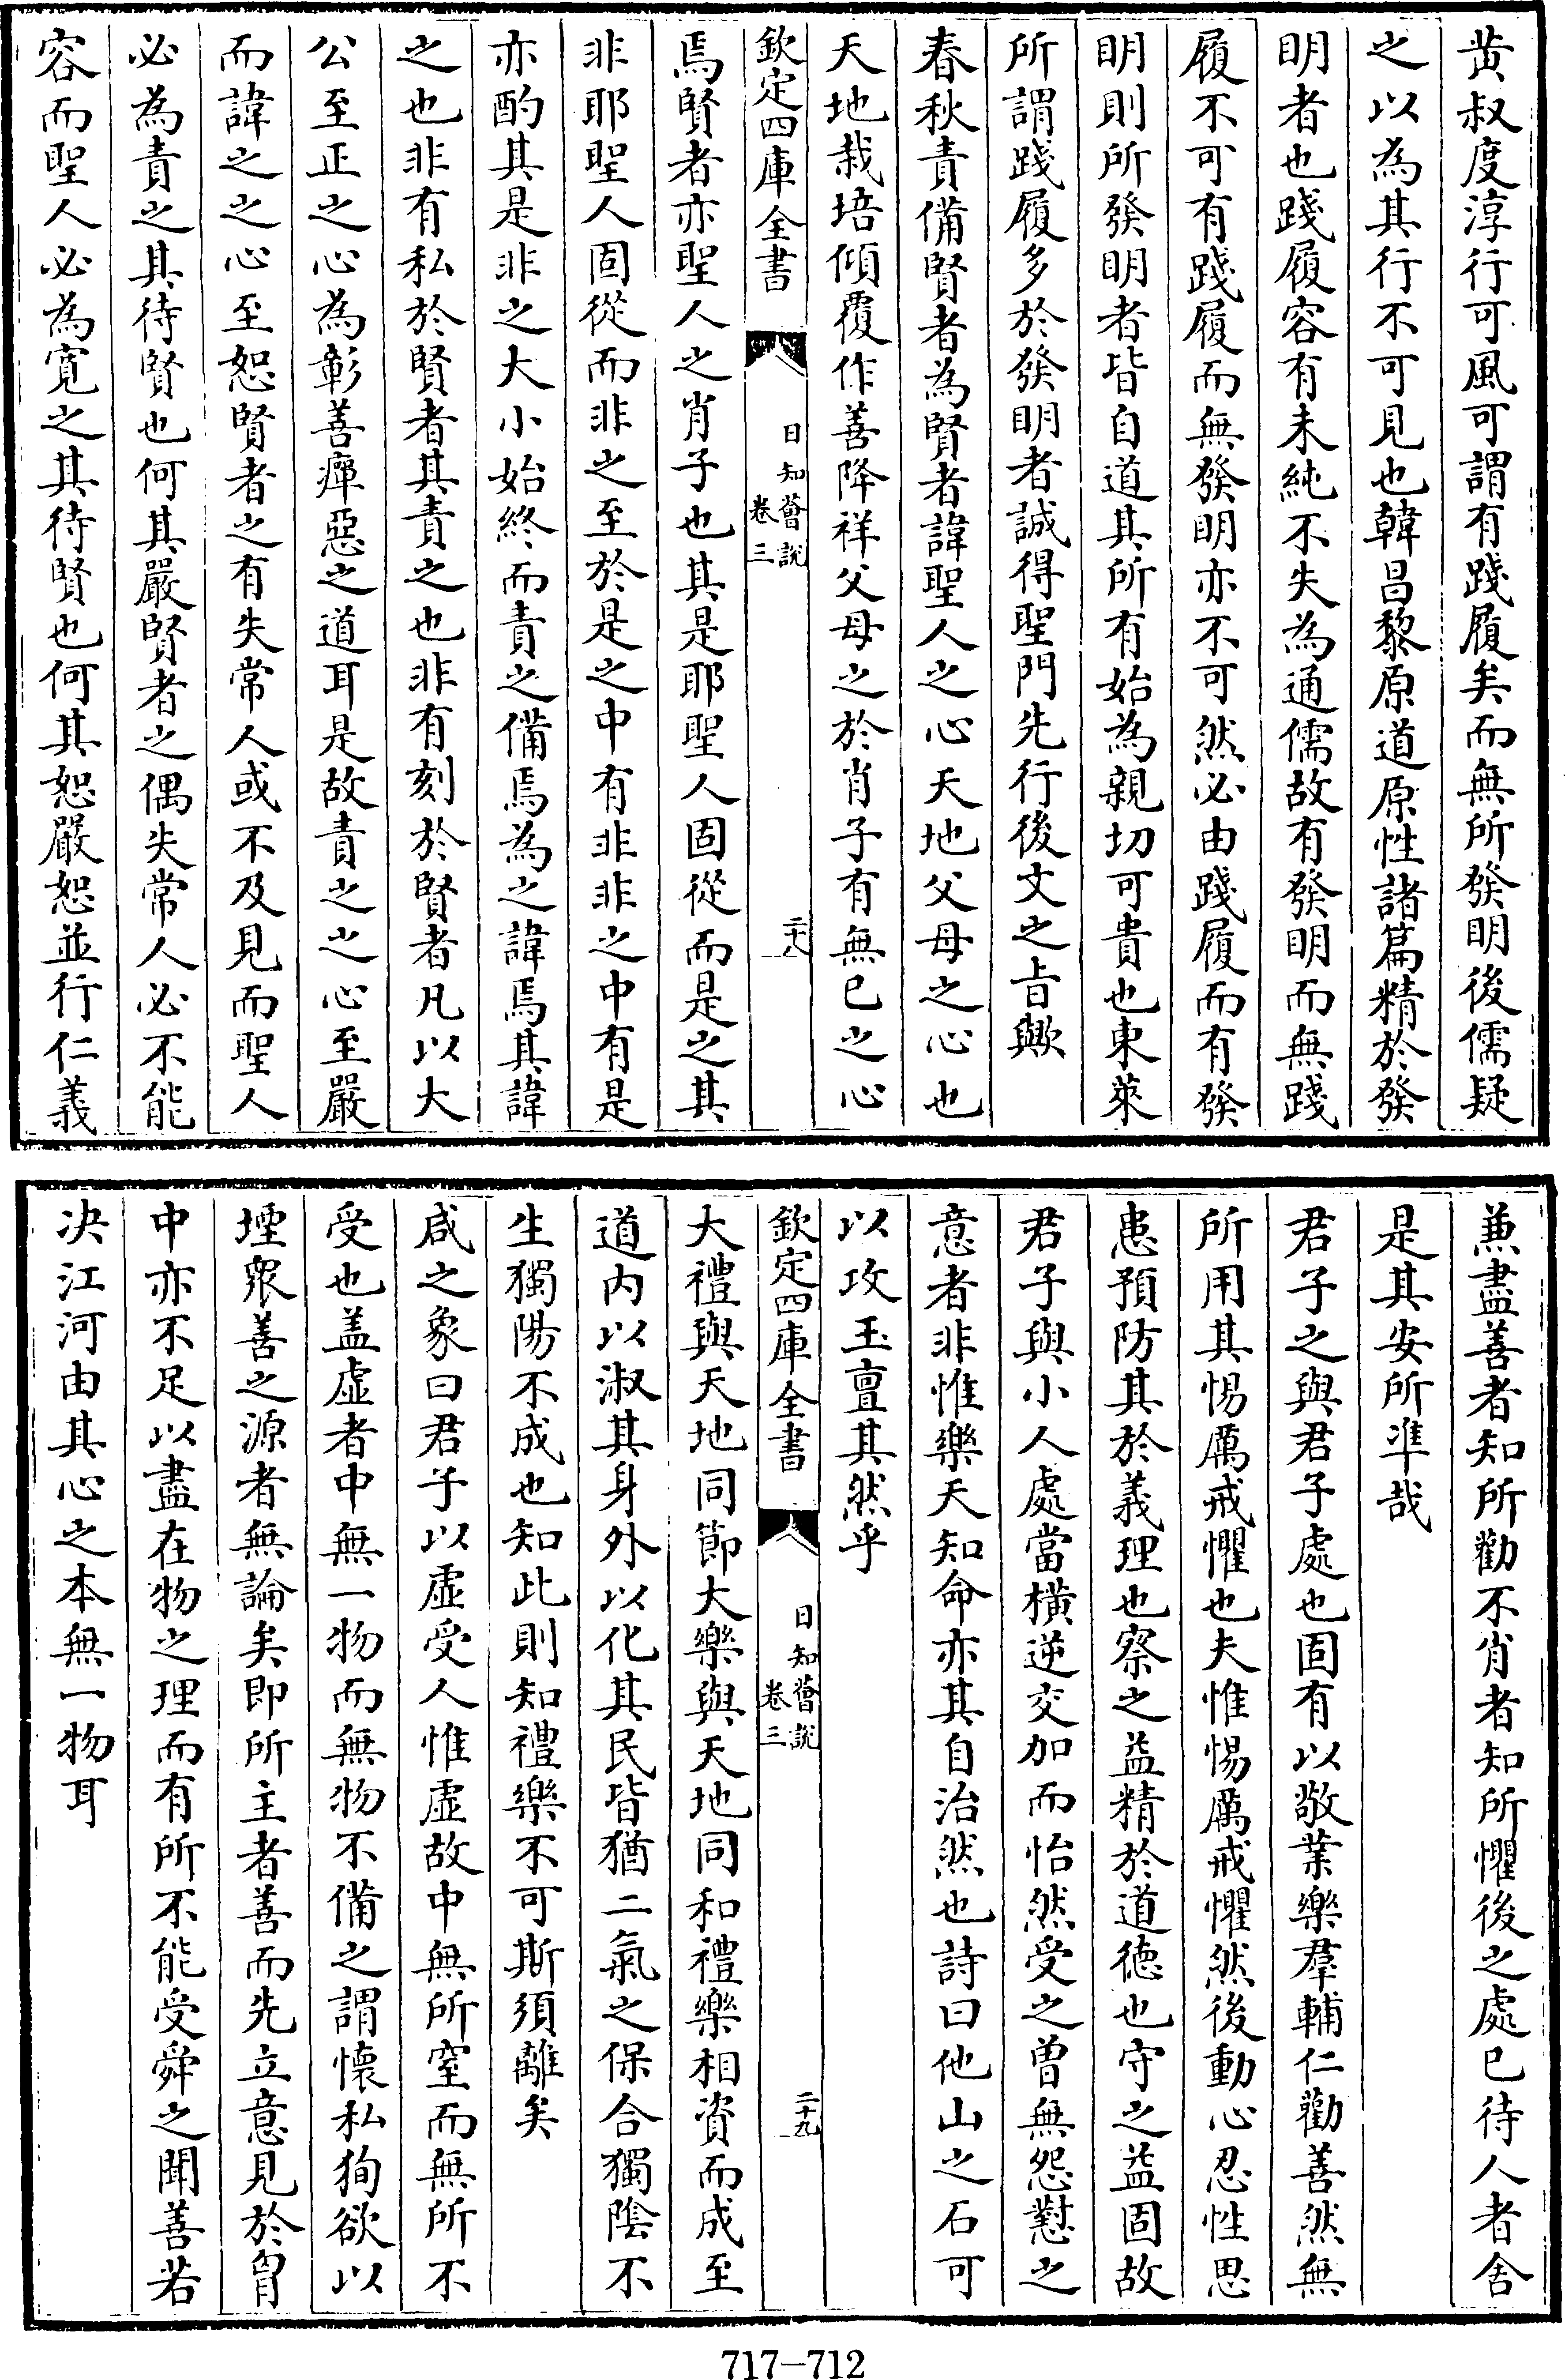 黄叔度淳行可風可謂有踐履矣而無所發明後儒疑
之以為其行不可見也韓昌黎原道原性諸篇精於發
明者也踐履容有未純不失為通儒故有發明而無踐
履不可有踐履而無發明亦不可然必由踐履而有發
明則所發明者皆自道其所有始為親切可貴也東萊
所謂踐履多於發明者誠得聖門先行後文之旨歟
春秋責備賢者為賢者諱聖人之心天地父母之心也
天地栽培傾覆作善降祥父母之於肖子有無已之心
欽定四庫全書
日知薈說
卷三
二十八
焉賢者亦聖人之肖子也其是耶聖人固從而是之其
非耶聖人固從而非之至於是之中有非非之中有是
亦酌其是非之大小始終而責之備焉為之諱焉其諱
之也非有私於賢者其責之也非有刻於賢者凡以大
公至正之心為彰善癉惡之道耳是故責之之心至嚴
而諱之之心至恕賢者之有失常人或不及見而聖人
必為責之其待賢也何其嚴賢者之偶失常人必不能
容而聖人必為寬之其待賢也何其恕嚴恕並行仁義
兼盡善者知所勸不肖者知所懼後之處已待人者舍
是其安所準哉
君子之與君子處也固有以敬業樂羣輔仁勸善然無
所用其惕厲戒懼也夫惟惕厲戒懼然後動心忍性思
患預防其於義理也察之益精於道德也守之益固故
君子與小人處當橫逆交加而怡然受之曾無怨懟之
意者非惟樂天知命亦其自治然也詩曰他山之石可
以攻玉亶其然乎
欽定四庫全書
日知薈說
卷三
二十九
大禮與天地同節大樂與天地同和禮樂相資而成至
道內以淑其身外以化其民皆猶二氣之保合獨陰不
生獨陽不成也知此則知禮樂不可斯須離矣
咸之象曰君子以虛受人惟虛故中無所窒而無所不
受也盖虛者中無一物而無物不備之謂懷私狥欲以
堙衆善之源者無論矣即所主者善而先立意見於胷
中亦不足以盡在物之理而有所不能受舜之聞善若
决江河由其心之本無一物耳
717-712